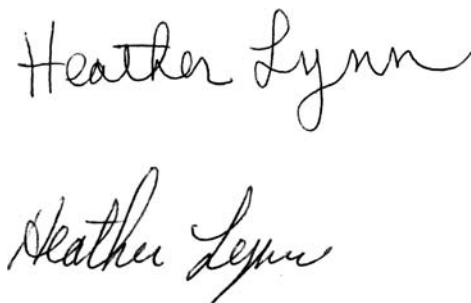 Heather Lynn
Heather Lynn